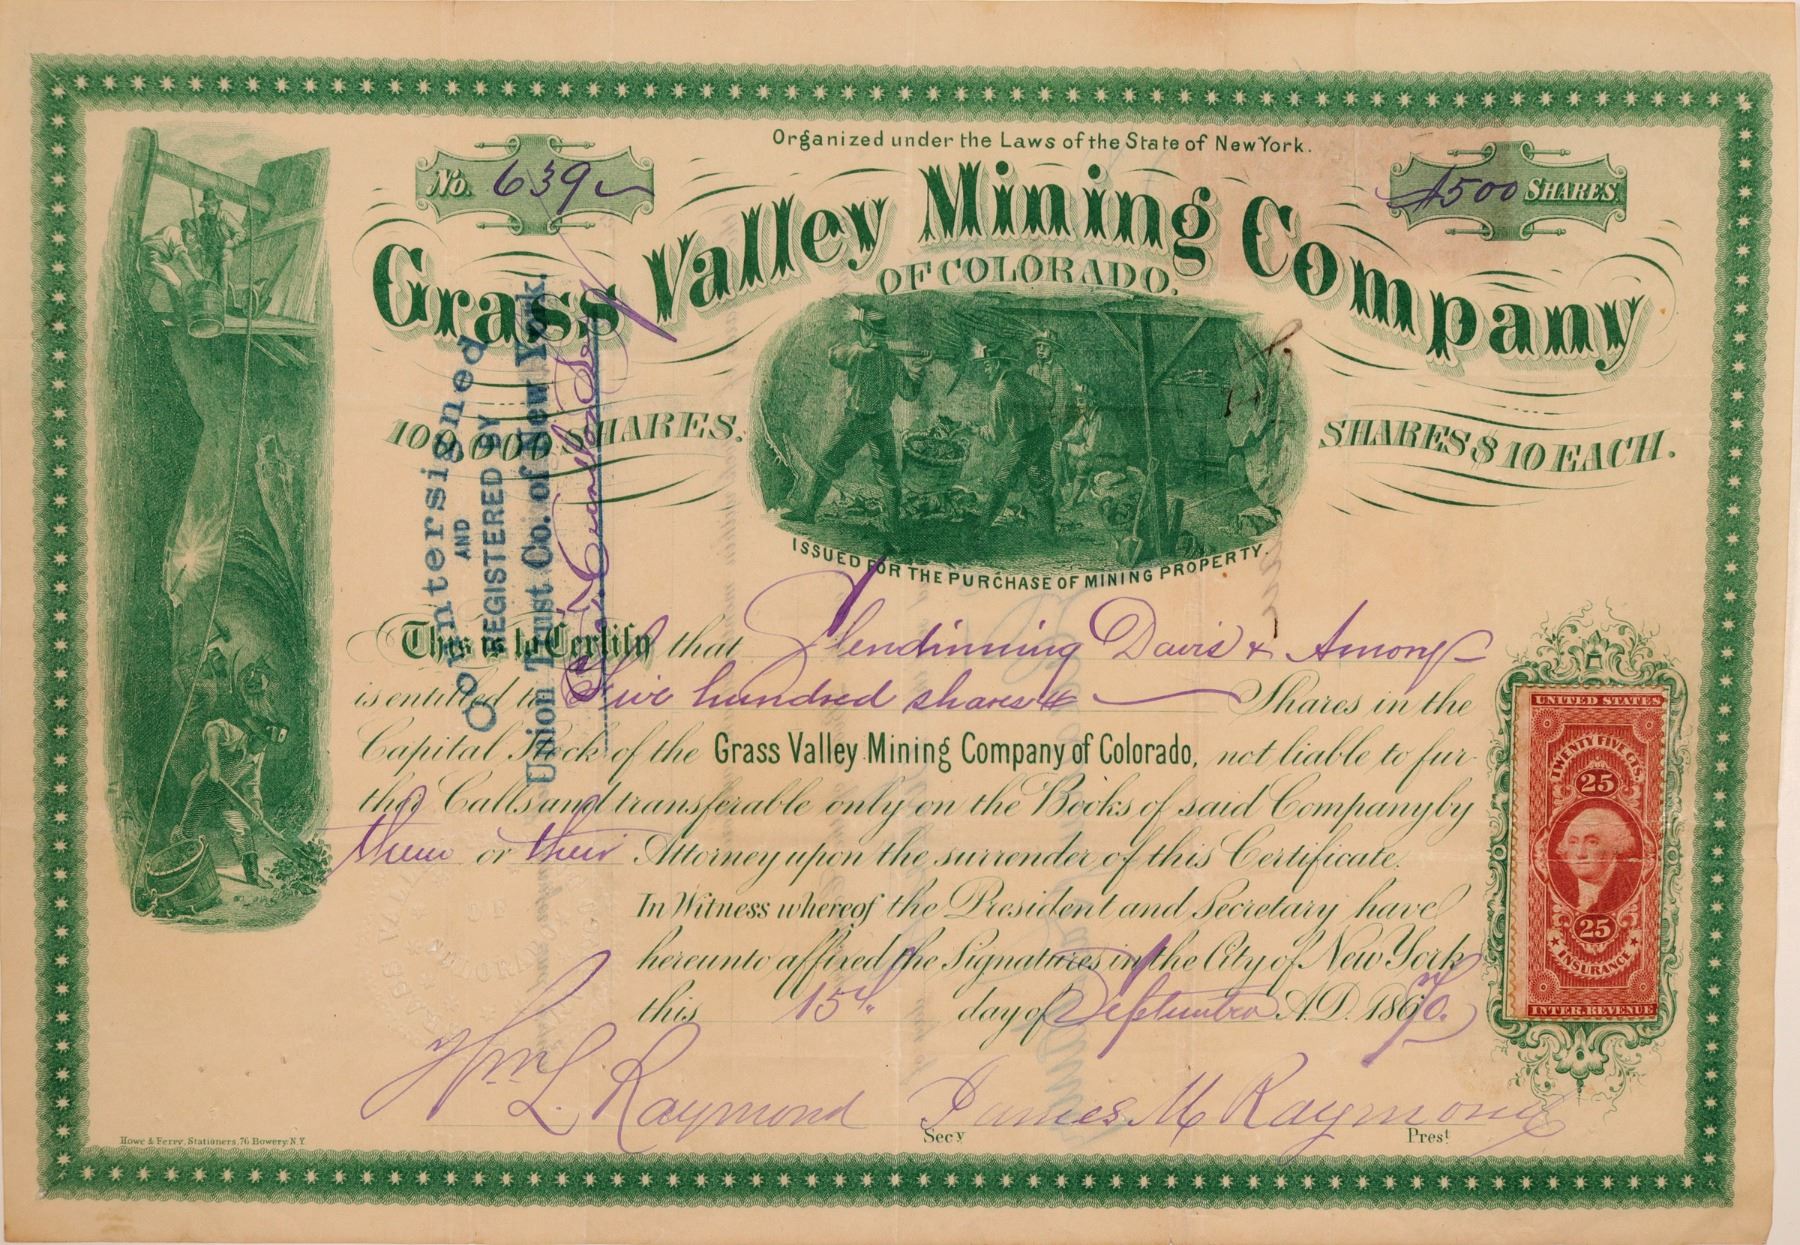 Organized under the Laws of the State of New York.
No. 639
500 SHARES
Grass Valley Mining Company
OF COLORADO.
100,000 SHARES.
SHARES $10 EACH.
ISSUED FOR THE PURCHASE OF MINING PROPERTY.
Countersigned
AND
REGISTERED BY
Union Trust Co. of New York.
This is to Certify that Glendinning Davis & Amory
is entitled to Five hundred shares Shares in the
Capital Stock of the Grass Valley Mining Company of Colorado, not liable to fur
ther Calls and transferable only on the Books of said Company by
them or their Attorney upon the surrender of this Certificate.
In Witness whereof the President and Secretary have
hereunto affixed the Signatures in the City of New York
this 15th day of September A.D. 1870.
Wm L. Raymond Secy
James M Raymond Prest
UNITED STATES
TWENTY FIVE CTS.
25
25
INSURANCE
INTER. REVENUE
Howe & Ferry, Stationers, 76 Bowery. N.Y.